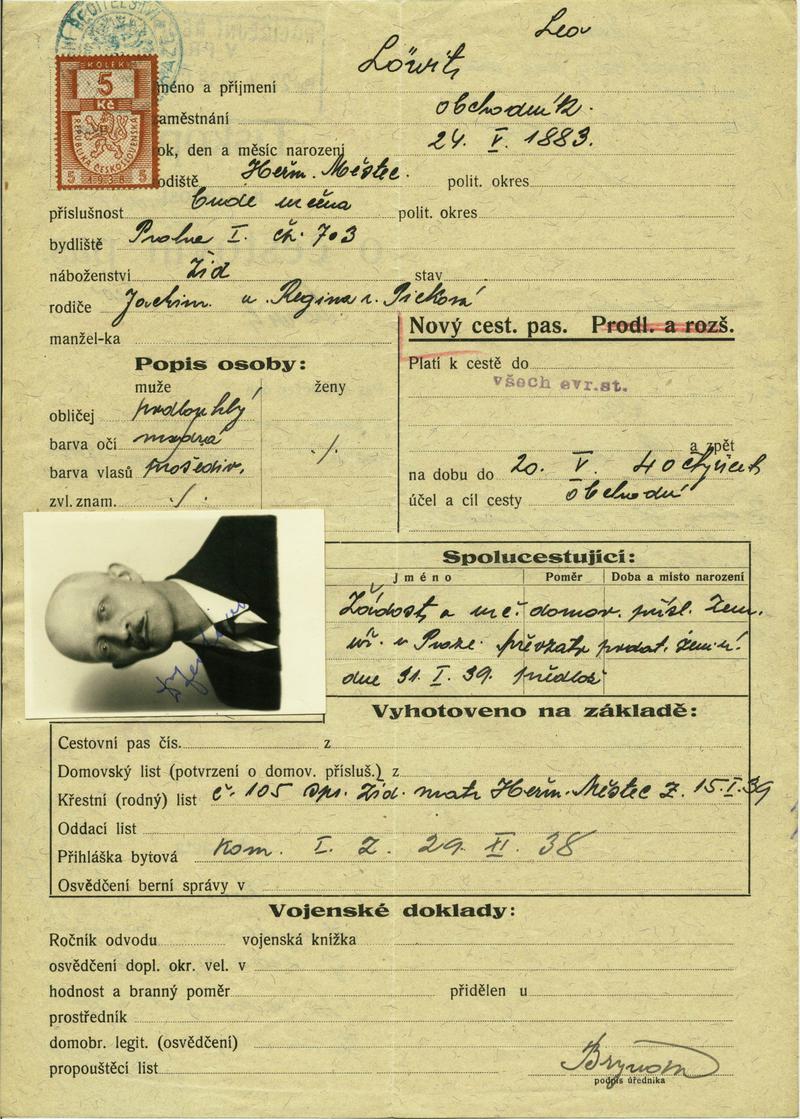 Leo
Löwit
KOLEK
5
Kč
REPUBLIKA ČESKOSLOVENSKÁ
5 1938 5
méno a příjmení
aměstnání obchodník.
ok, den a měsíc narození 24. V. 1883.
odiště Heřm. Městec. polit. okres
příslušnost bude určena polit. okres
bydliště Praha I. čp. 703
náboženství žid stav
rodiče Joachim a Regina r. Picková
manžel-ka
Nový cest. pas. Prodl. a rozš.
Popis osoby:
muže ženy
obličej podlouhlý
barva očí modrá
barva vlasů prošediv.
zvl. znam.
Platí k cestě do
všech evr.st.
a zpět
na dobu do 20. V. 40 čtyřicet
účel a cíl cesty obchodní
Spolucestující:
Jméno Poměr Doba a místo narození
Žádost o urč. domov. přísl. Zem.
úř. v Praze
dne 31. I. 39.
Vyhotoveno na základě:
Cestovní pas čís. z
Domovský list (potvrzení o domov. přísluš.) z
Křestní (rodný) list č. 105 žid. matr Heřm. Městec z. 15.I.39
Oddací list
Přihláška bytová Kom. I. z. 29. XI. 38
Osvědčení berní správy v
Vojenské doklady:
Ročník odvodu vojenská knížka
osvědčení dopl. okr. vel. v
hodnost a branný poměr přidělen u
prostředník
domobr. legit. (osvědčení)
propouštěcí list
podpis úředníka